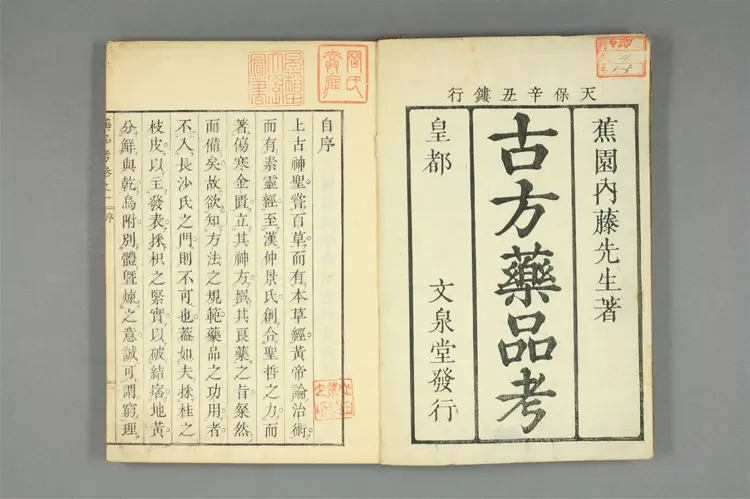 天保辛丑鏤行
蕉園內藤先生著
古方藥品考
皇都 文泉堂發行
自序
上古神聖嘗百草。而有本草經。黃帝論治術。
而有素靈經。至漢仲景氏。創合聖哲之力。而
著傷寒金匱。立其神方。撰其良藥之旨。粲然
而備矣。故欲知方法之規範。藥品之功用者。
不入長沙氏之門。則不可也。蓋如夫採桂之
枝皮。以主發表。採枳之緊實。以破結痞。地黃
分鮮與乾。烏附別體曁煉之意。誠可謂窮理。
藥品考卷之一 序